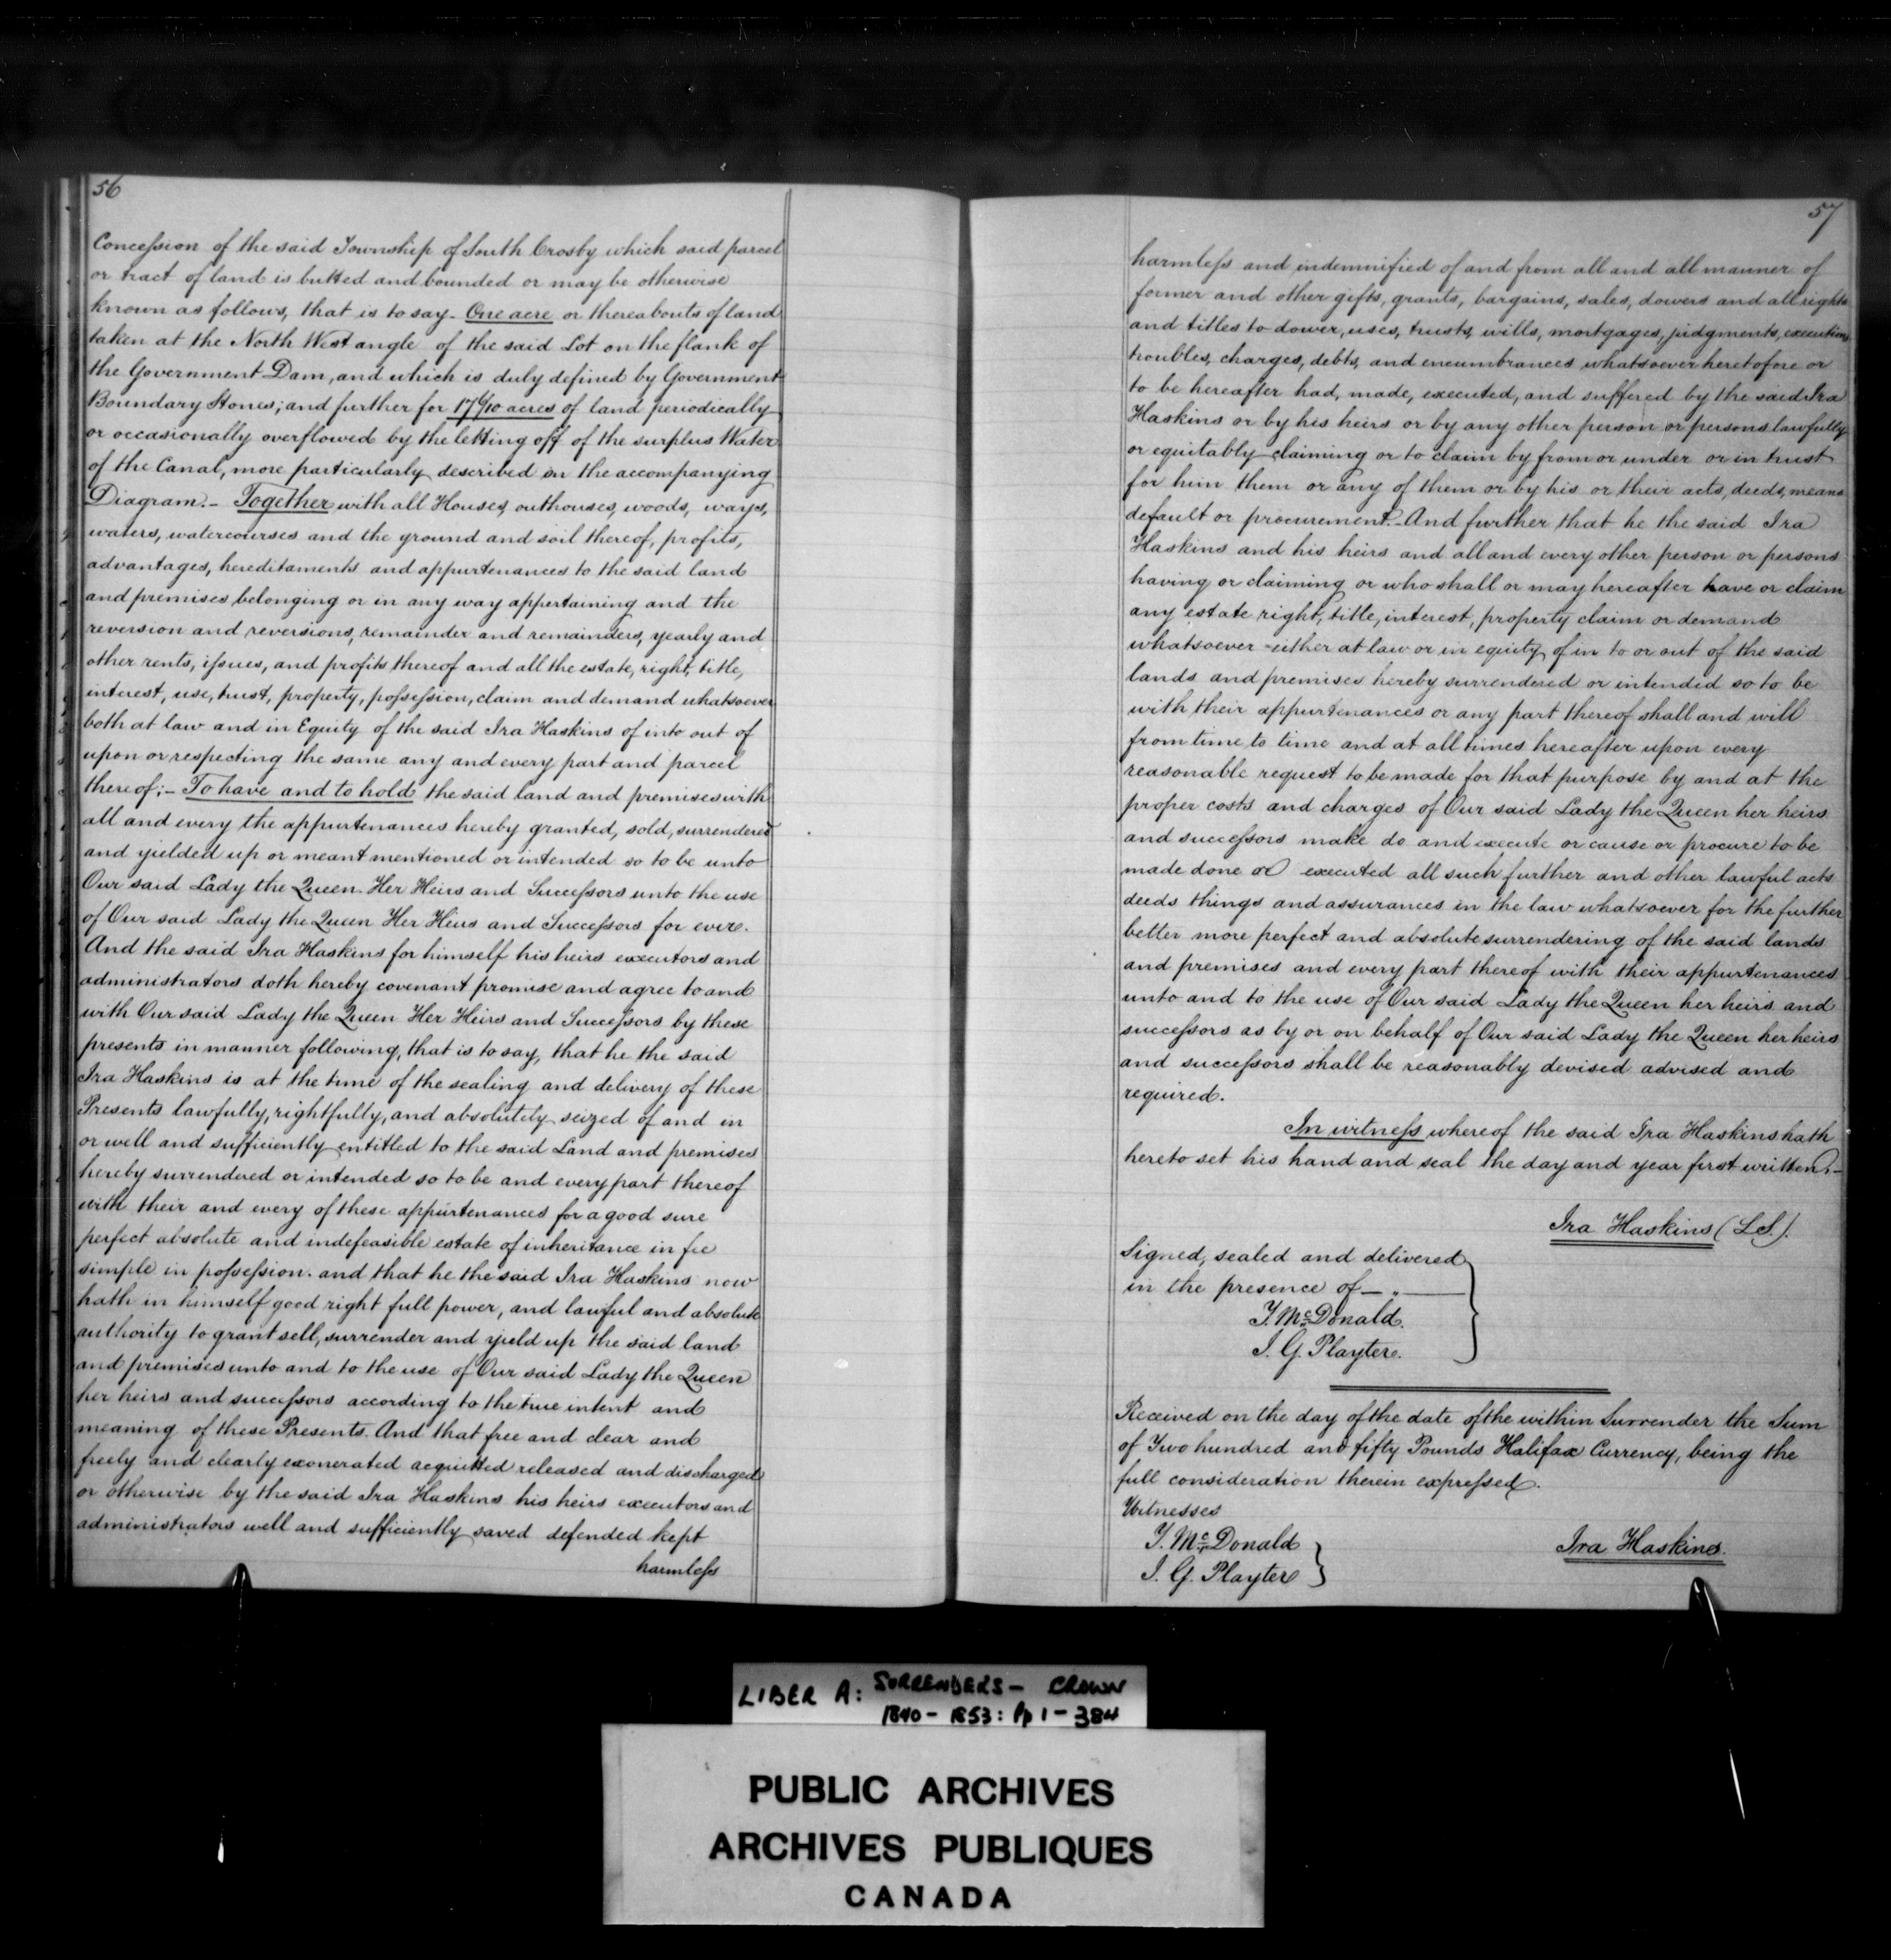 56
Concession of the said Township of South Crosby which said parcel
or tract of land is butted and bounded or may be otherwise
known as follows, that is to say - One acre or thereabouts of land
taken at the North West angle of the said Lot on the flank of
the Government Dam, and which is duly defined by Government
Boundary Stones; and further for 17 6/10 acres of land periodically
or occasionally overflowed by the letting off of the surplus Water
of the Canal, more particularly described on the accompanying
Diagram. - Together with all Houses, outhouses, woods, ways,
waters, watercourses and the ground and soil thereof, profits,
advantages, hereditaments and appurtenances to the said land
and premises belonging or in any way appertaining and the
reversion and reversions, remainder and remainders, yearly and
other rents, issues, and profits thereof and all the estate, right, title,
interest, use, trust, property, possession, claim and demand whatsoever
both at law and in Equity of the said Ira Haskins of into out of
upon or respecting the same any and every part and parcel
thereof; - To have and to hold the said land and premises with
all and every the appurtenances hereby granted, sold, surrendered
and yielded up or meant mentioned or intended so to be unto
Our said Lady the Queen Her Heirs and Successors unto the use
of Our said Lady the Queen Her Heirs and Successors for ever.
And the said Ira Haskins for himself his heirs executors and
administrators doth hereby covenant promise and agree to and
with Our said Lady the Queen Her Heirs and Successors by these
presents in manner following, that is to say, that he the said
Ira Haskins is at the time of the sealing and delivery of these
Presents lawfully, rightfully, and absolutely seized of and in
or well and sufficiently entitled to the said Land and premises
hereby surrendered or intended so to be and every part thereof
with their and every of these appurtenances for a good sure
perfect absolute and indefeasible estate of inheritance in fee
simple in possession. and that he the said Ira Haskins now
hath in himself good right full power, and lawful and absolute
authority to grant sell, surrender and yield up the said land
and premises unto and to the use of Our said Lady the Queen
her heirs and successors according to the true intent and
meaning of these Presents. And that free and clear and
freely and clearly exonerated acquitted released and discharged
or otherwise by the said Ira Haskins his heirs executors and
administrators well and sufficiently saved defended kept
harmless
57
harmless and indemnified of and from all and all manner of
former and other gifts, grants, bargains, sales, dowers and all rights
and titles to dower, uses, trusts, wills, mortgages, judgments, executions
troubles, charges, debts, and encumbrances whatsoever heretofore or
to be hereafter had, made, executed, and suffered by the said Ira
Haskins or by his heirs or by any other person or persons lawfully
or equitably claiming or to claim by from or under or in trust
for him them or any of them or by his or their acts, deeds, means
default or procurement. - And further that he the said Ira
Haskins and his heirs and all and every other person or persons
having or claiming or who shall or may hereafter have or claim
any estate right, title, interest, property claim or demand
whatsoever either at law or in equity of in to or out of the said
lands and premises hereby surrendered or intended so to be
with their appurtenances or any part thereof shall and will
from time to time and at all times hereafter upon every
reasonable request to be made for that purpose by and at the
proper costs and charges of Our said Lady the Queen her heirs
and successors make do and execute or cause or procure to be
made done or executed all such further and other lawful acts
deeds things and assurances in the law whatsoever for the further
better more perfect and absolute surrendering of the said lands
and premises and every part thereof with their appurtenances
unto and to the use of Our said Lady the Queen her heirs and
successors as by or on behalf of Our said Lady the Queen her heirs
and successors shall be reasonably devised advised and
required.
In witness whereof the said Ira Haskins hath
hereto set his hand and seal the day and year first written. -
Ira Haskins (L.S.).
Signed, sealed and delivered
in the presence of - " -
T. McDonald.
J. G. Playter.
Received on the day of the date of the within Surrender the Sum
of Two hundred and fifty Pounds Halifax Currency, being the
full consideration therein expressed.
Witnesses
T. McDonald
J. G. Playter
Ira Haskins.
LIBER A: SURRENDERS - CROWN
1840 - 1853: Pp 1 - 384
PUBLIC ARCHIVES
ARCHIVES PUBLIQUES
CANADA